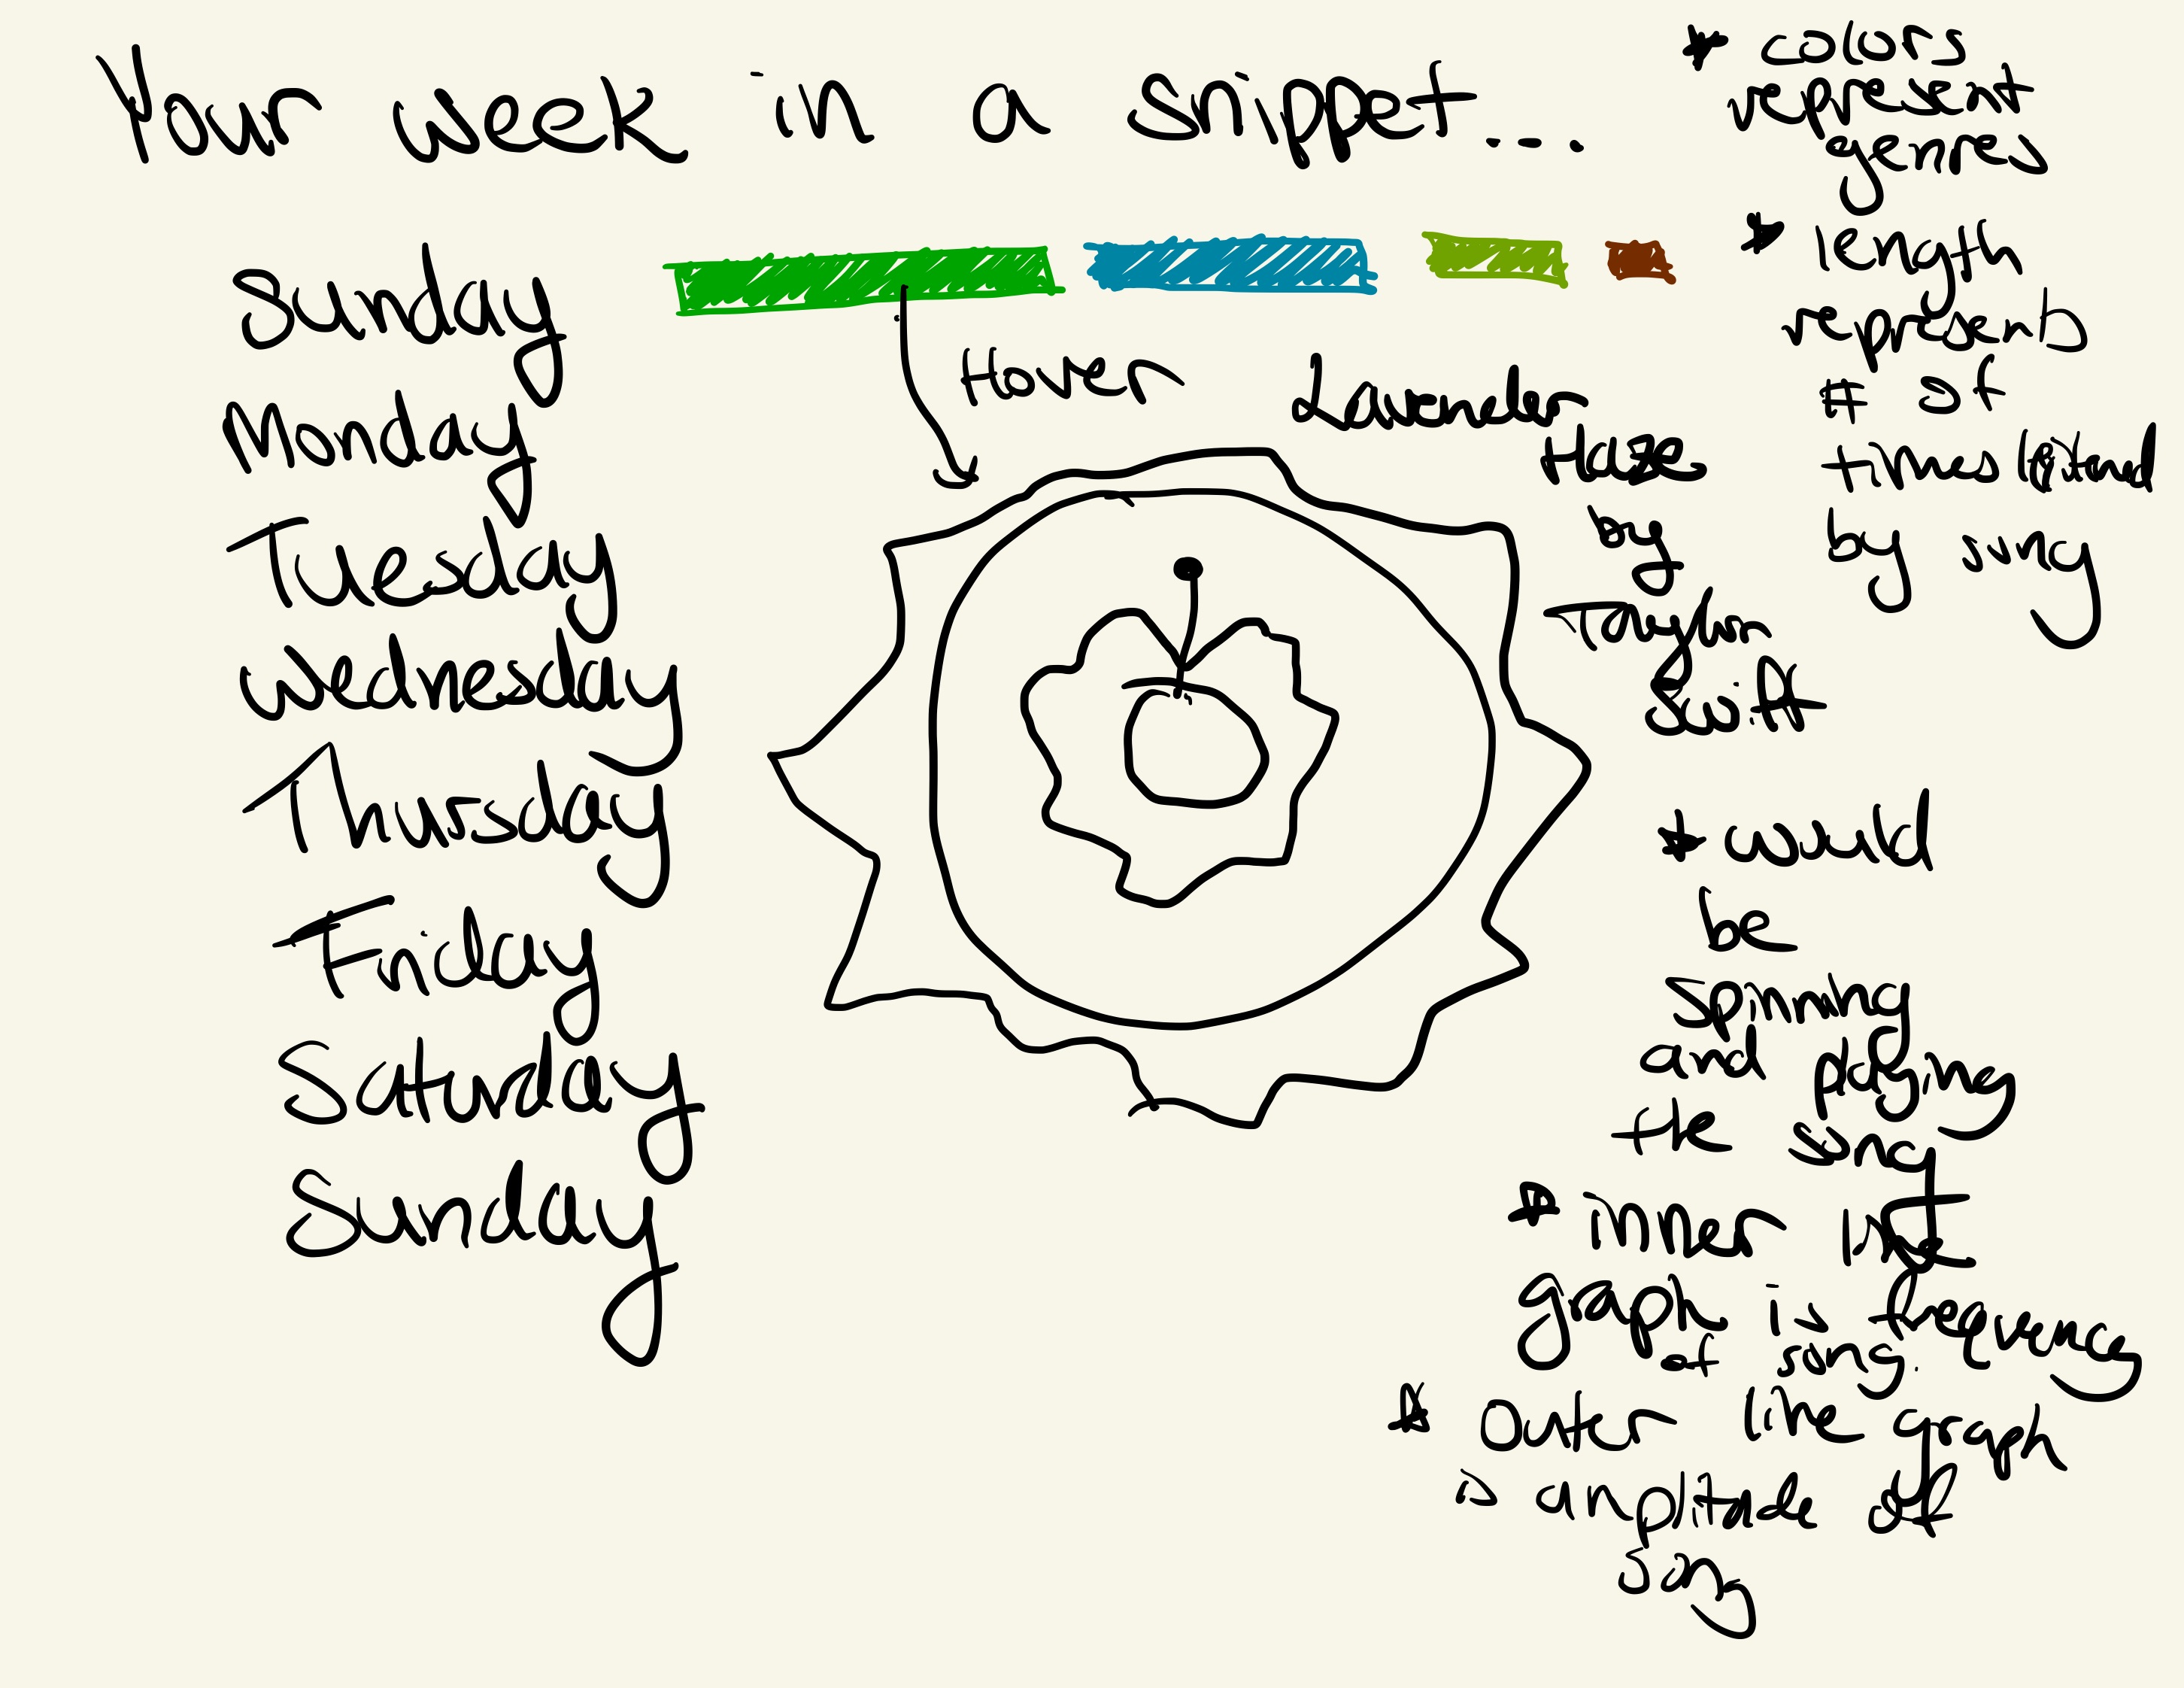 Your week in a snippet...
* colors
represent
genres
* length
represents
# of
times listened
by song
Sunday
Monday
Tuesday
Wednesday
Thursday
Friday
Saturday
Sunday
Hover
Lavender
Haze
by
Taylor
Swift
* would
be
spinning
and playing
the song
* inner line
graph is frequency
of song.
* Outer line graph
is amplitude of
song